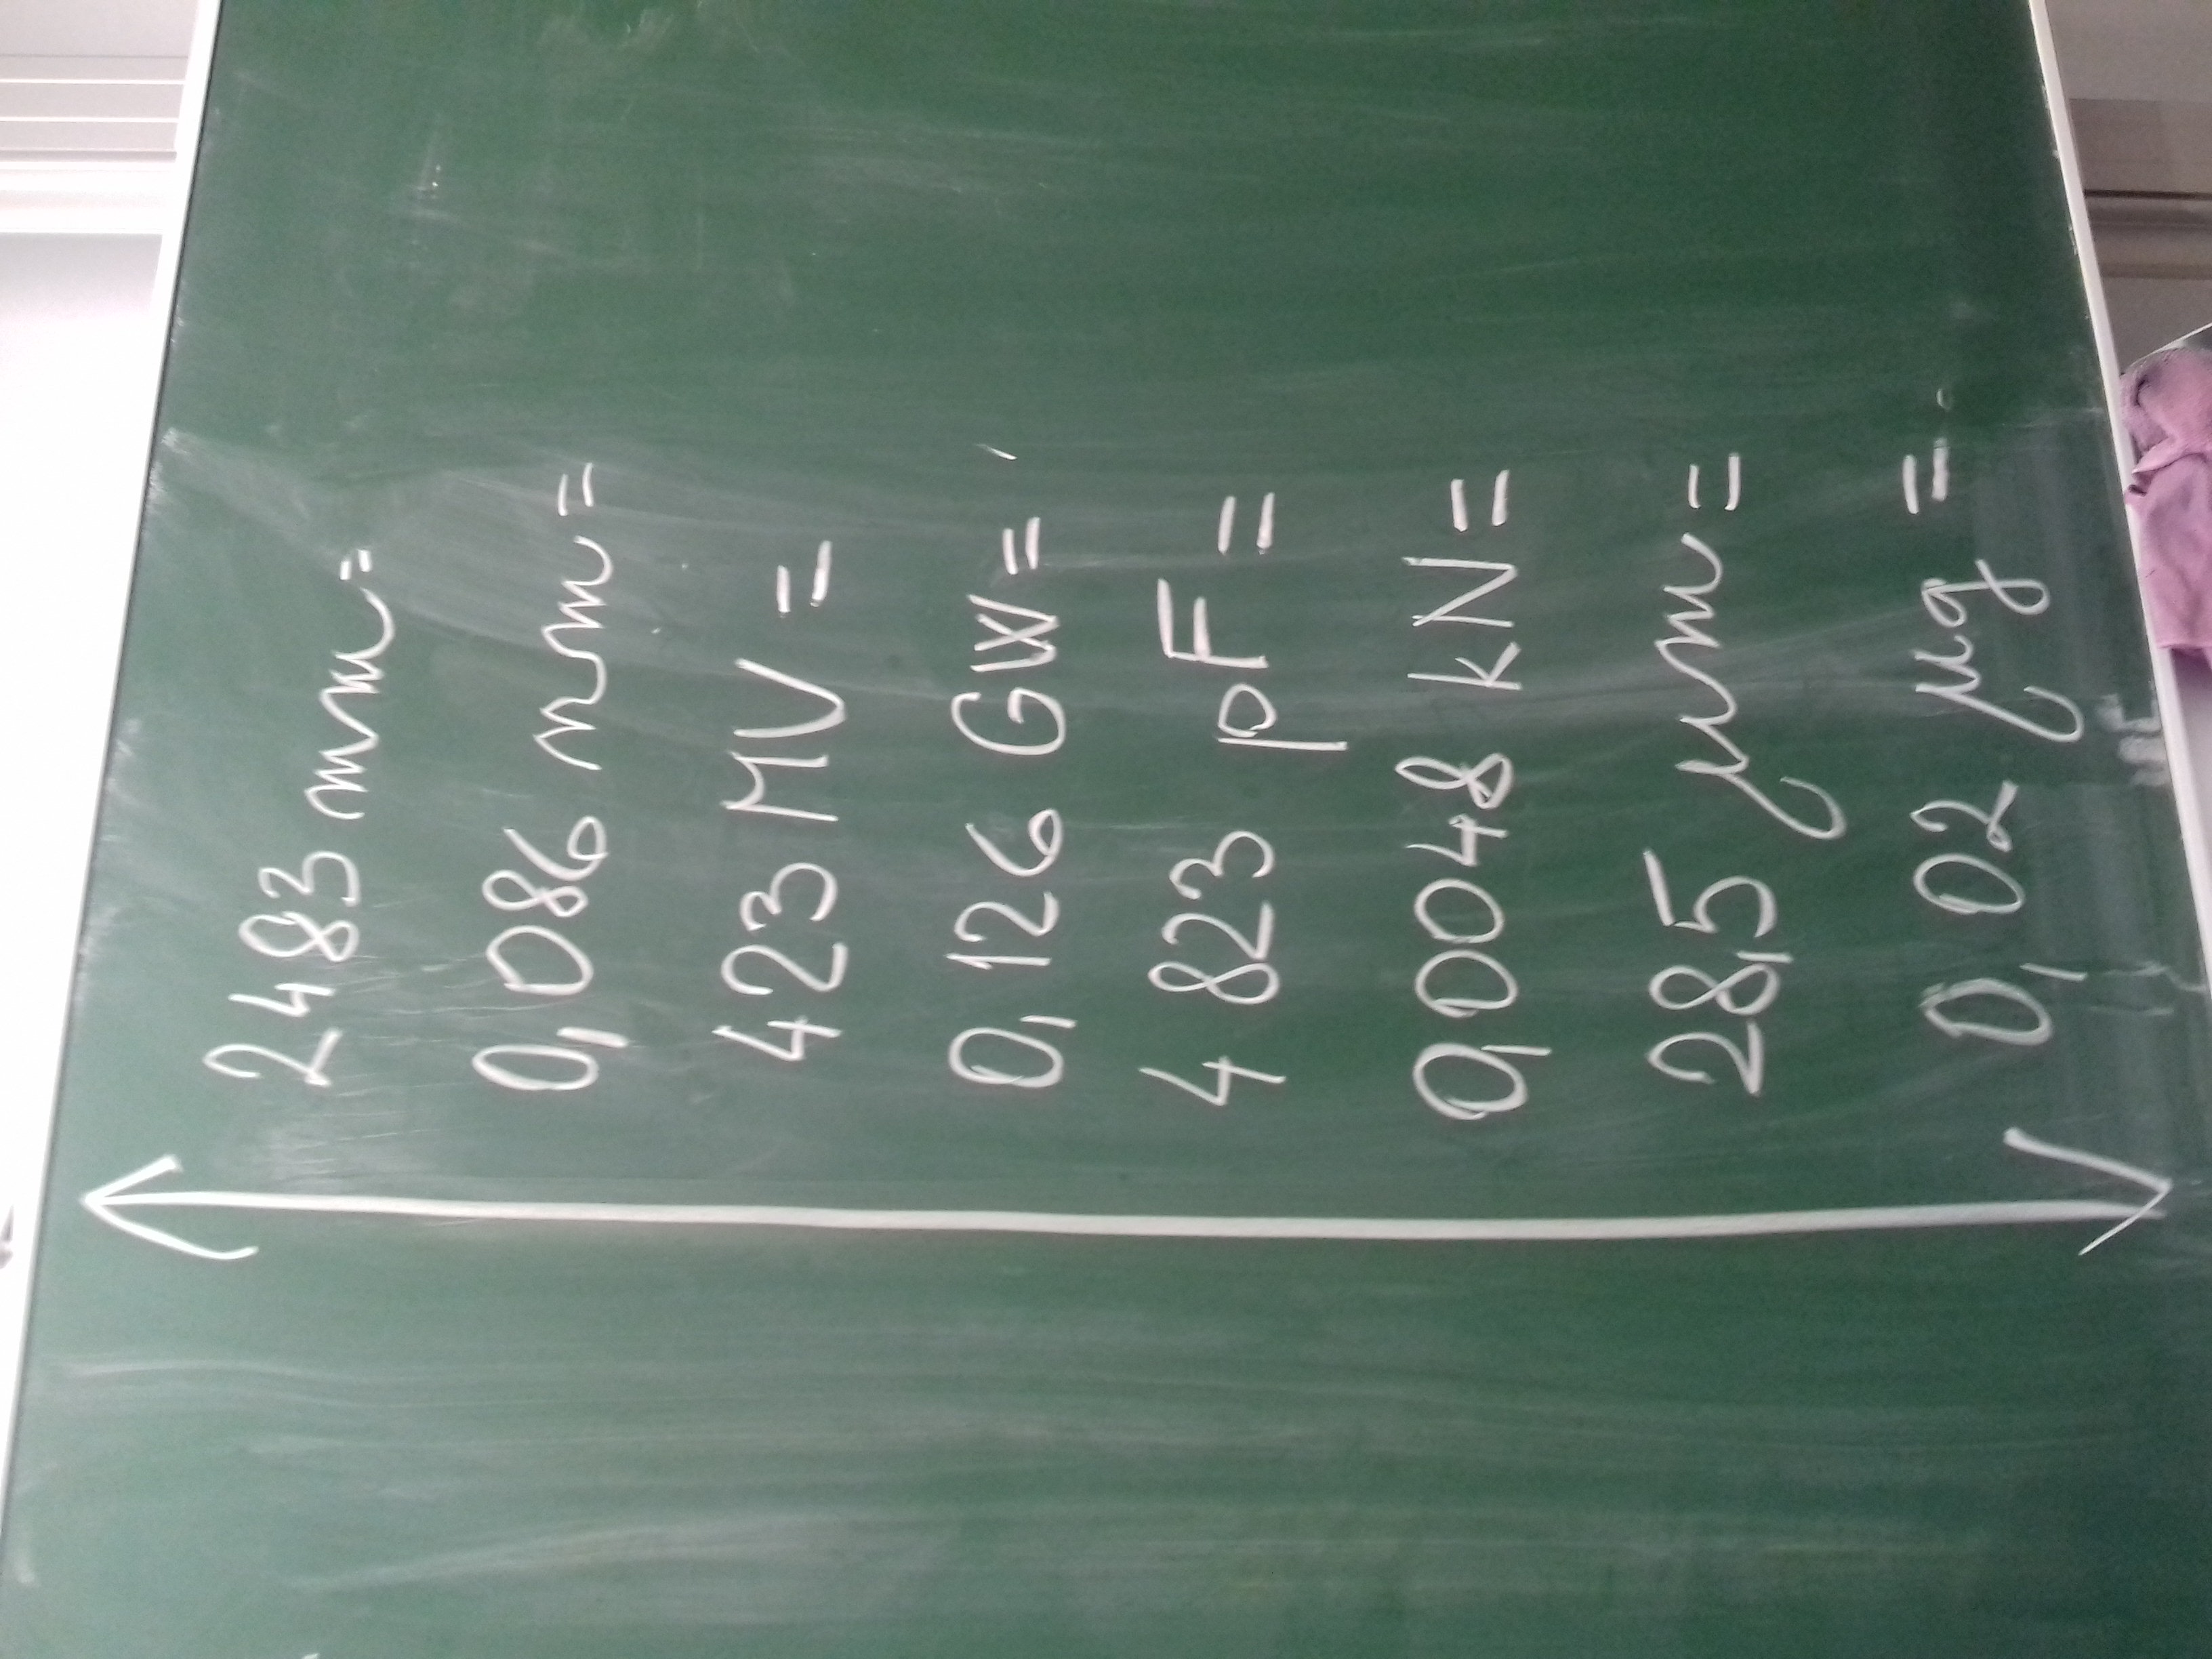 2483 mm =
0,086 nm =
423 MV =
0,126 GW =
4 823 pF =
0,0048 kN =
28,5 μm =
0,02 μg =